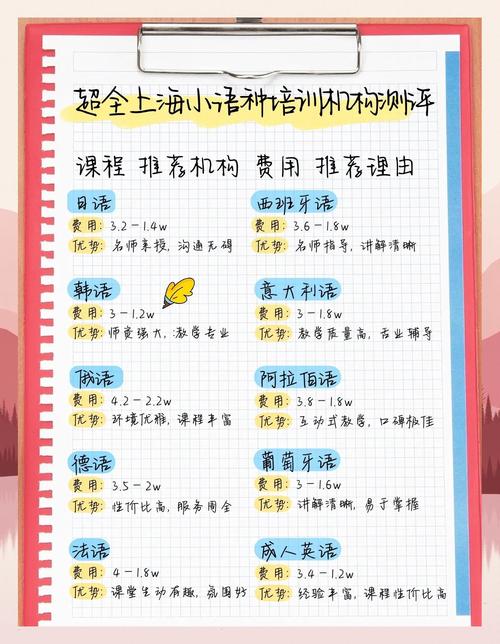 超全上海小语种培训机构测评
课程 推荐机构 费用 推荐理由
日语
费用：3.2-1.4w
优势：名师亲授，沟通无碍
韩语
费用：3-1.2w
优势：师资强大，教学专业
俄语
费用：4.2-2.2w
优势：环境优雅，课程丰富
德语
费用：3.5-2w
优势：性价比高，服务周全
法语
费用：4-1.8w
优势：课堂生动有趣，氛围好
西班牙语
费用：3.6-1.8w
优势：名师指导，讲解清晰
意大利语
费用：3-1.8w
优势：教学质量高，专业辅导
阿拉伯语
费用：3.8-1.8w
优势：互动式教学，口碑极佳
葡萄牙语
费用：3-1.6w
优势：讲解清晰，易于掌握
成人英语
费用：3.4-1.2w
优势：经验丰富，课程性价比高